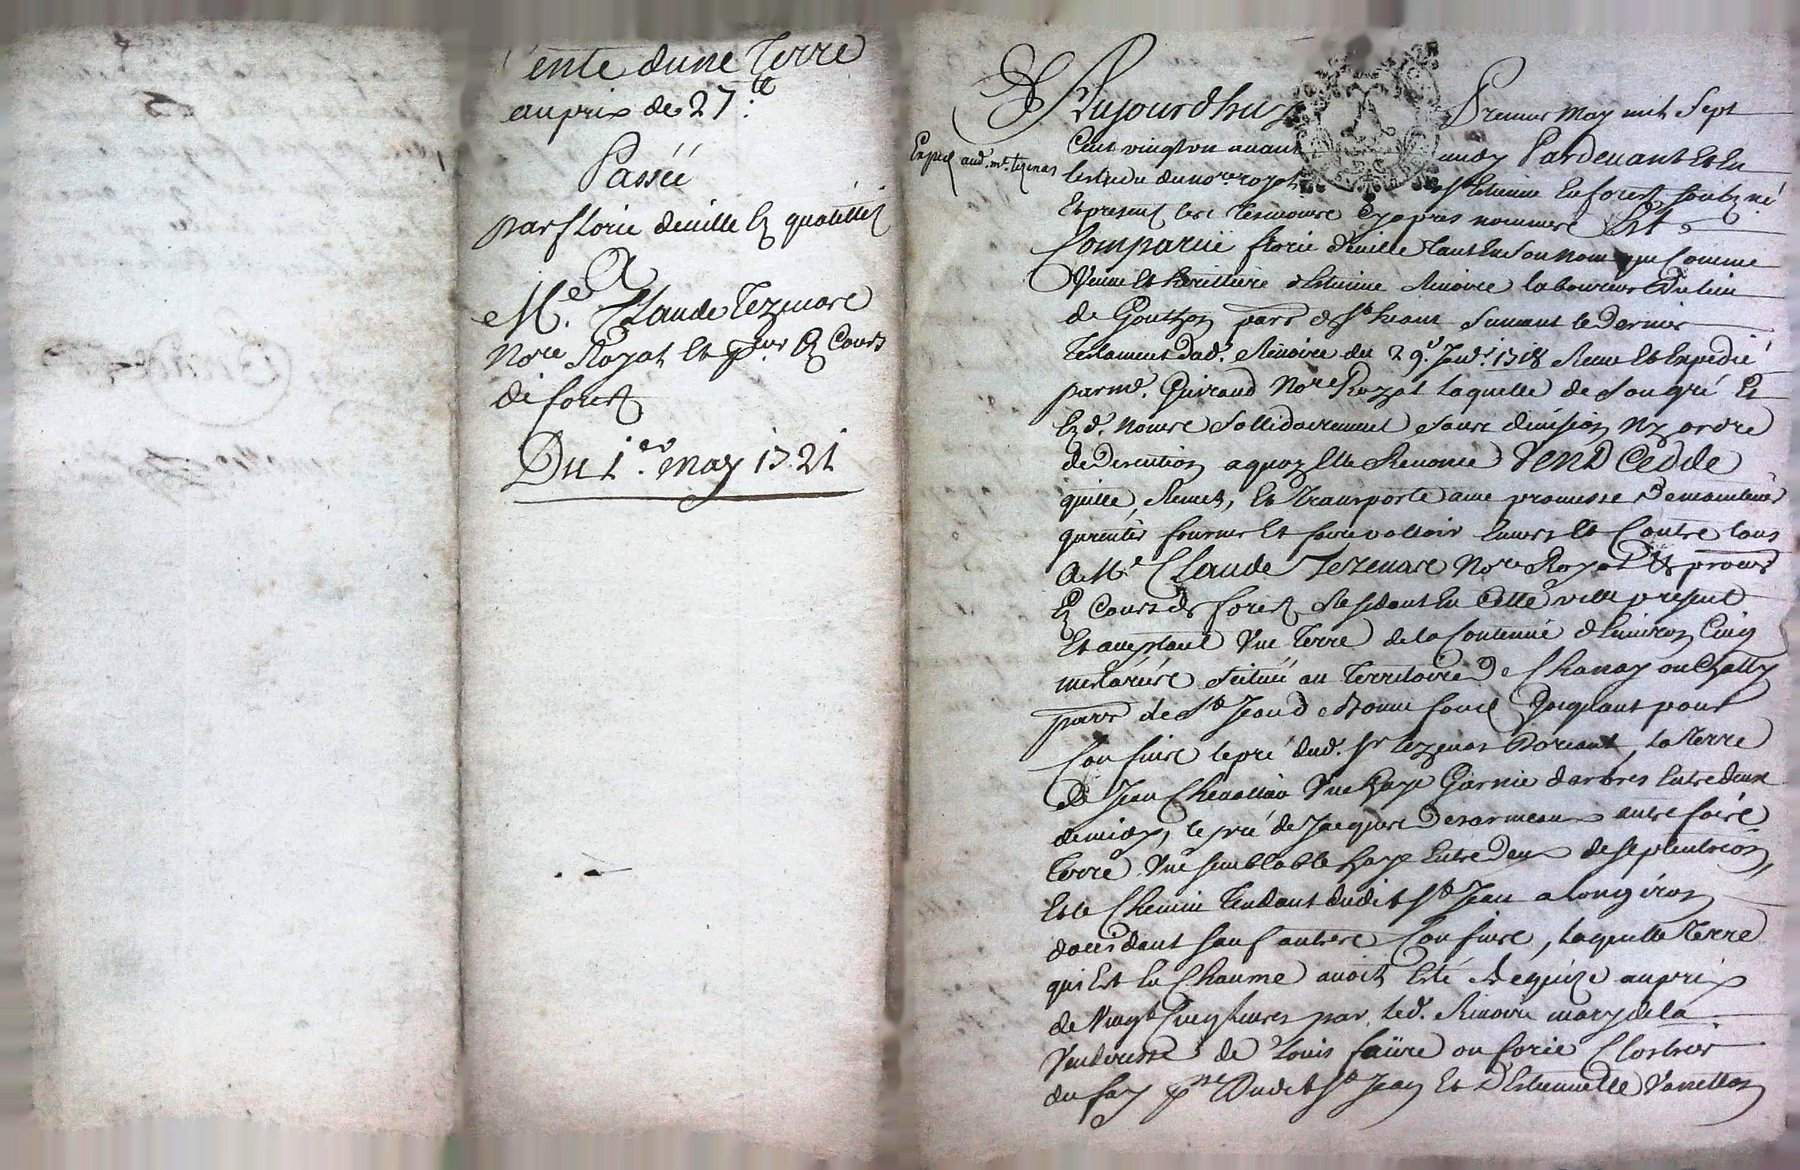 Vente dune Terre
au prix de 27.tt
Passéé
par florie deville Ez qualittéz
A
Me. Claude Tezenare
Nore Royal Et pcur Ez Cours
de forest
Du 1er. may 1721
Aujourdhuy Premier May mil Sept
Cent vingt un avant midy Pardevant Et En
Exped. aud. me. tezenas
lestude du nore. royal St. Estienne En forest soubzné
Et present les tesmoins cy apres nommés fut
Comparüe florie deville tant En son nom que Comme
Veuve Et heritiere d'Estienne laboureur du lieu
de parr de St. heant Suivant le dernier
testament dud. du 29e. Janv. 1718 Receu Et Expedié
par me. Guiraud Nore Royal laquelle de son gré Et
Ezd. noms Sollidairement sans division ny ordre
de discution a quoy Elle Renonce VEND CEDDE
quitte, Remet, Et transporte avec promesse de maintenir
garentir fournir Et faire valloir Envers Et Contre tous
A Me. Claude Tezenare Nore Royal Et procur
Ez Cours de forest Residant En Cette ville present
Et acceptant Une Terre de la Contenüe d'Environ Cinq
meterées Scituée au Territoire de Chanay ou
parr de St. Jean de Bonnefond Joignant pour
Confins le pré dud. sr tezenas d'oriant, la Terre
de Jean Une haye Garnie darbres Entredeux
de midy, le pré de Jacques Desarmeaux autre fois
terre Une semblable haye Entredeux de septentrion,
Et le Chemin Tendant dudit St. Jean a
doccidant sauf autres Confins, laquelle Terre
qui Est En Chaume avoit Esté acquize au prix
de Vingt Cinq livres par led. mary de la
Venderesse de Louis faüre ou forie
du fay psse Dudit St. Jean Et D'Estiennette